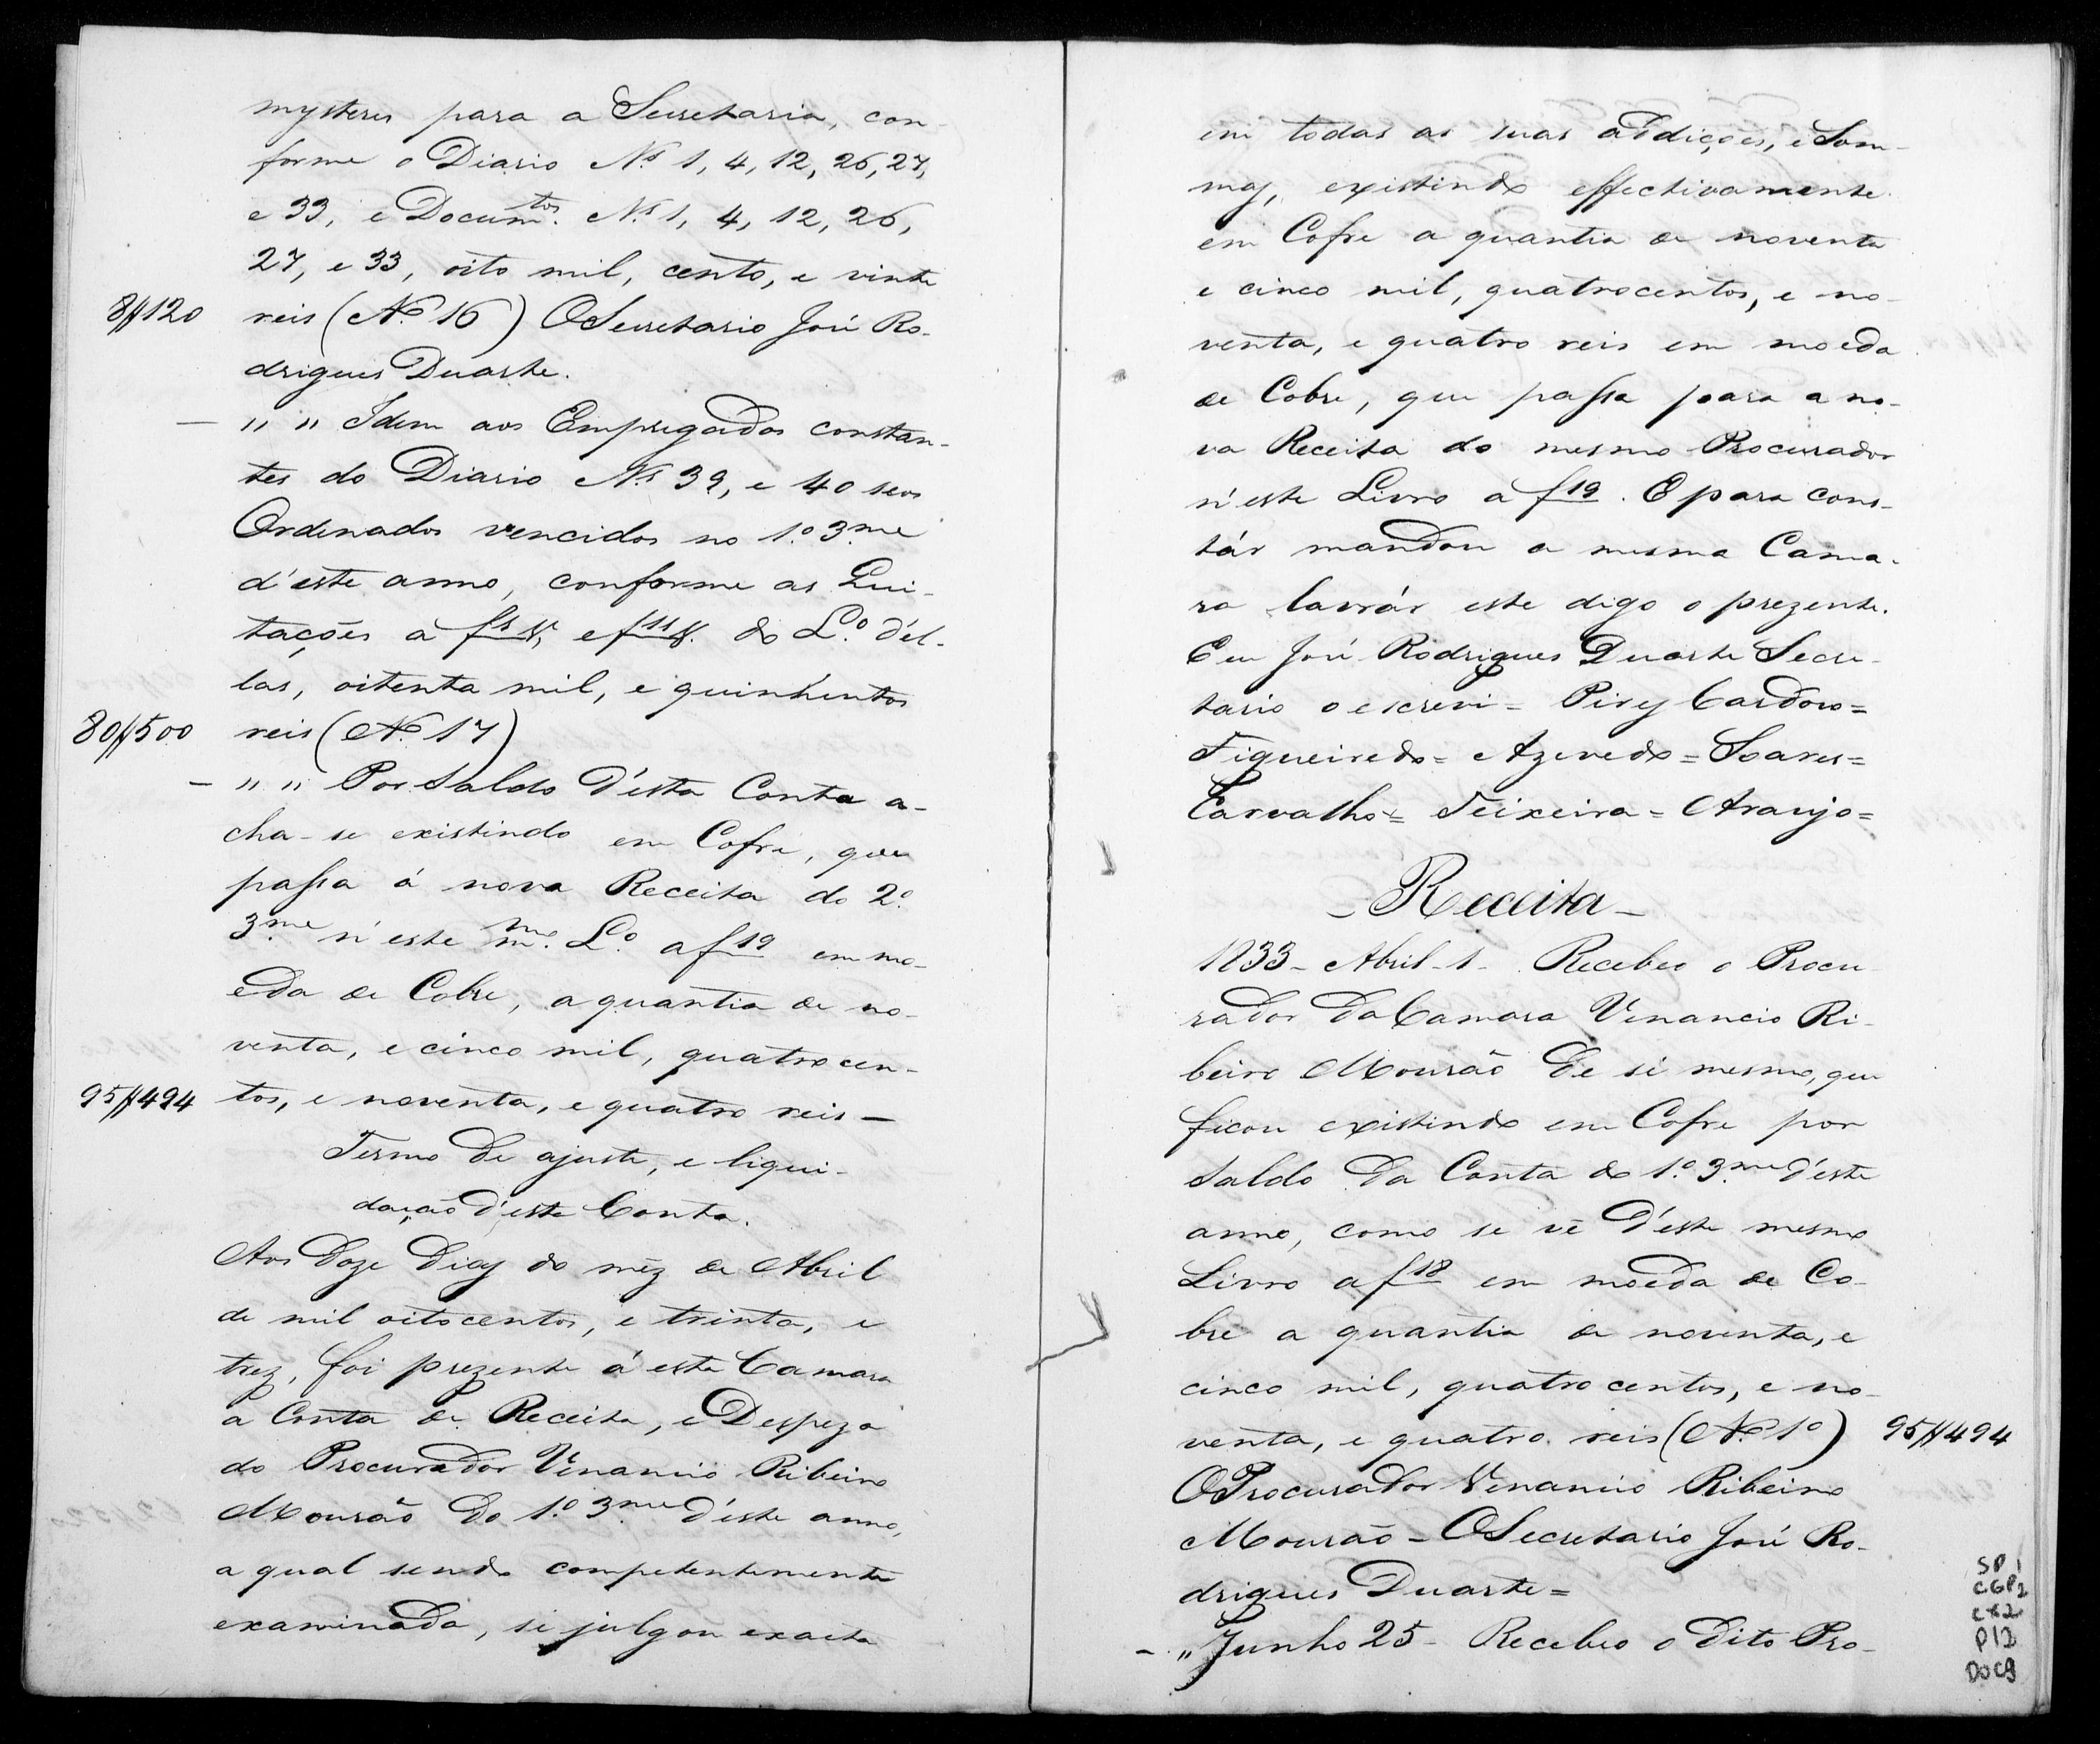 mysteres para a Secretaria, con-
forme o Diario Nos 1, 4, 12, 26, 27,
e 33, e Documtos. Nos 1, 4, 12, 26,
27, e 33, oito mil, cento, e vinte
8$120 reis (No 16) O Secretario José Ro-
drigues Duarte.
— " " Idem aos Empregados constan-
tes do Diario Nos 39, e 40 seos
Ordenados vencidos no 1.o 3.me
d'este anno, conforme as Qui-
tações a f do L.o d'el-
las, oitenta mil, e quinhentos
80$500 reis (No 17)
— " " Por Saldo d'esta Conta a-
cha-se existindo em Cofre, que
passa á nova Receita do 2.o
3.me n'este m.mo L.o a f 19 em mo-
eda de Cobre, a quantia de no-
venta, e cinco mil, quatrocen-
95$494 tos, e noventa, e quatro reis —
Termo de ajuste, e liqui-
dação d'esta Conta.
Aos doze dias do mêz de Abril
de mil oitocentos, e trinta, e
trez, foi prezente á esta Camara
a Conta de Receita, e Despeza
do Procurador Venancio Ribeiro
Mourão do 1.o 3.me d'este anno,
a qual sendo competentemente
examinada, se julgou exacta
em todas as suas addições, e Som-
mas, existindo effectivamente
em Cofre a quantia de noventa
e cinco mil, quatrocentos, e no-
venta, e quatro reis em moeda
de Cobre, que passa para a no-
va Receita do mesmo Procurador
n'este Livro a f 19. E para cons-
tár mandou a mesma Cama-
ra lavrár este digo o prezente.
Eu José Rodrigues Duarte Secre-
tario o escrevi = Pires Cardoso =
Figueiredo = Azevedo = Soares =
Carvalho = Teixeira = Araujo =
— Receita —
1833 — Abril — 1 — Recebeo o Procu-
rador da Camara Venancio Ri-
beiro Mourão de si mesmo, que
ficou existindo em Cofre por
Saldo da Conta do 1.o 3.me d'este
anno, como se vê d'este mesmo
Livro a f 18 em moeda de Co-
bre a quantia de noventa, e
cinco mil, quatrocentos, e no-
venta, e quatro reis (No 1o) 95$494
O Procurador Venancio Ribeiro
Mourão — O Secretario José Ro-
drigues Duarte =
— " Junho 25 — Recebeo o dito Pro-
SP1
CGP2
CX2
P12
DOC9